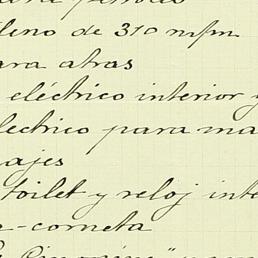 lleno de 310 m/m
para atras
eléctrico interior y
eléctrico para ma
ajes
toilet y reloj inte
e-corneta